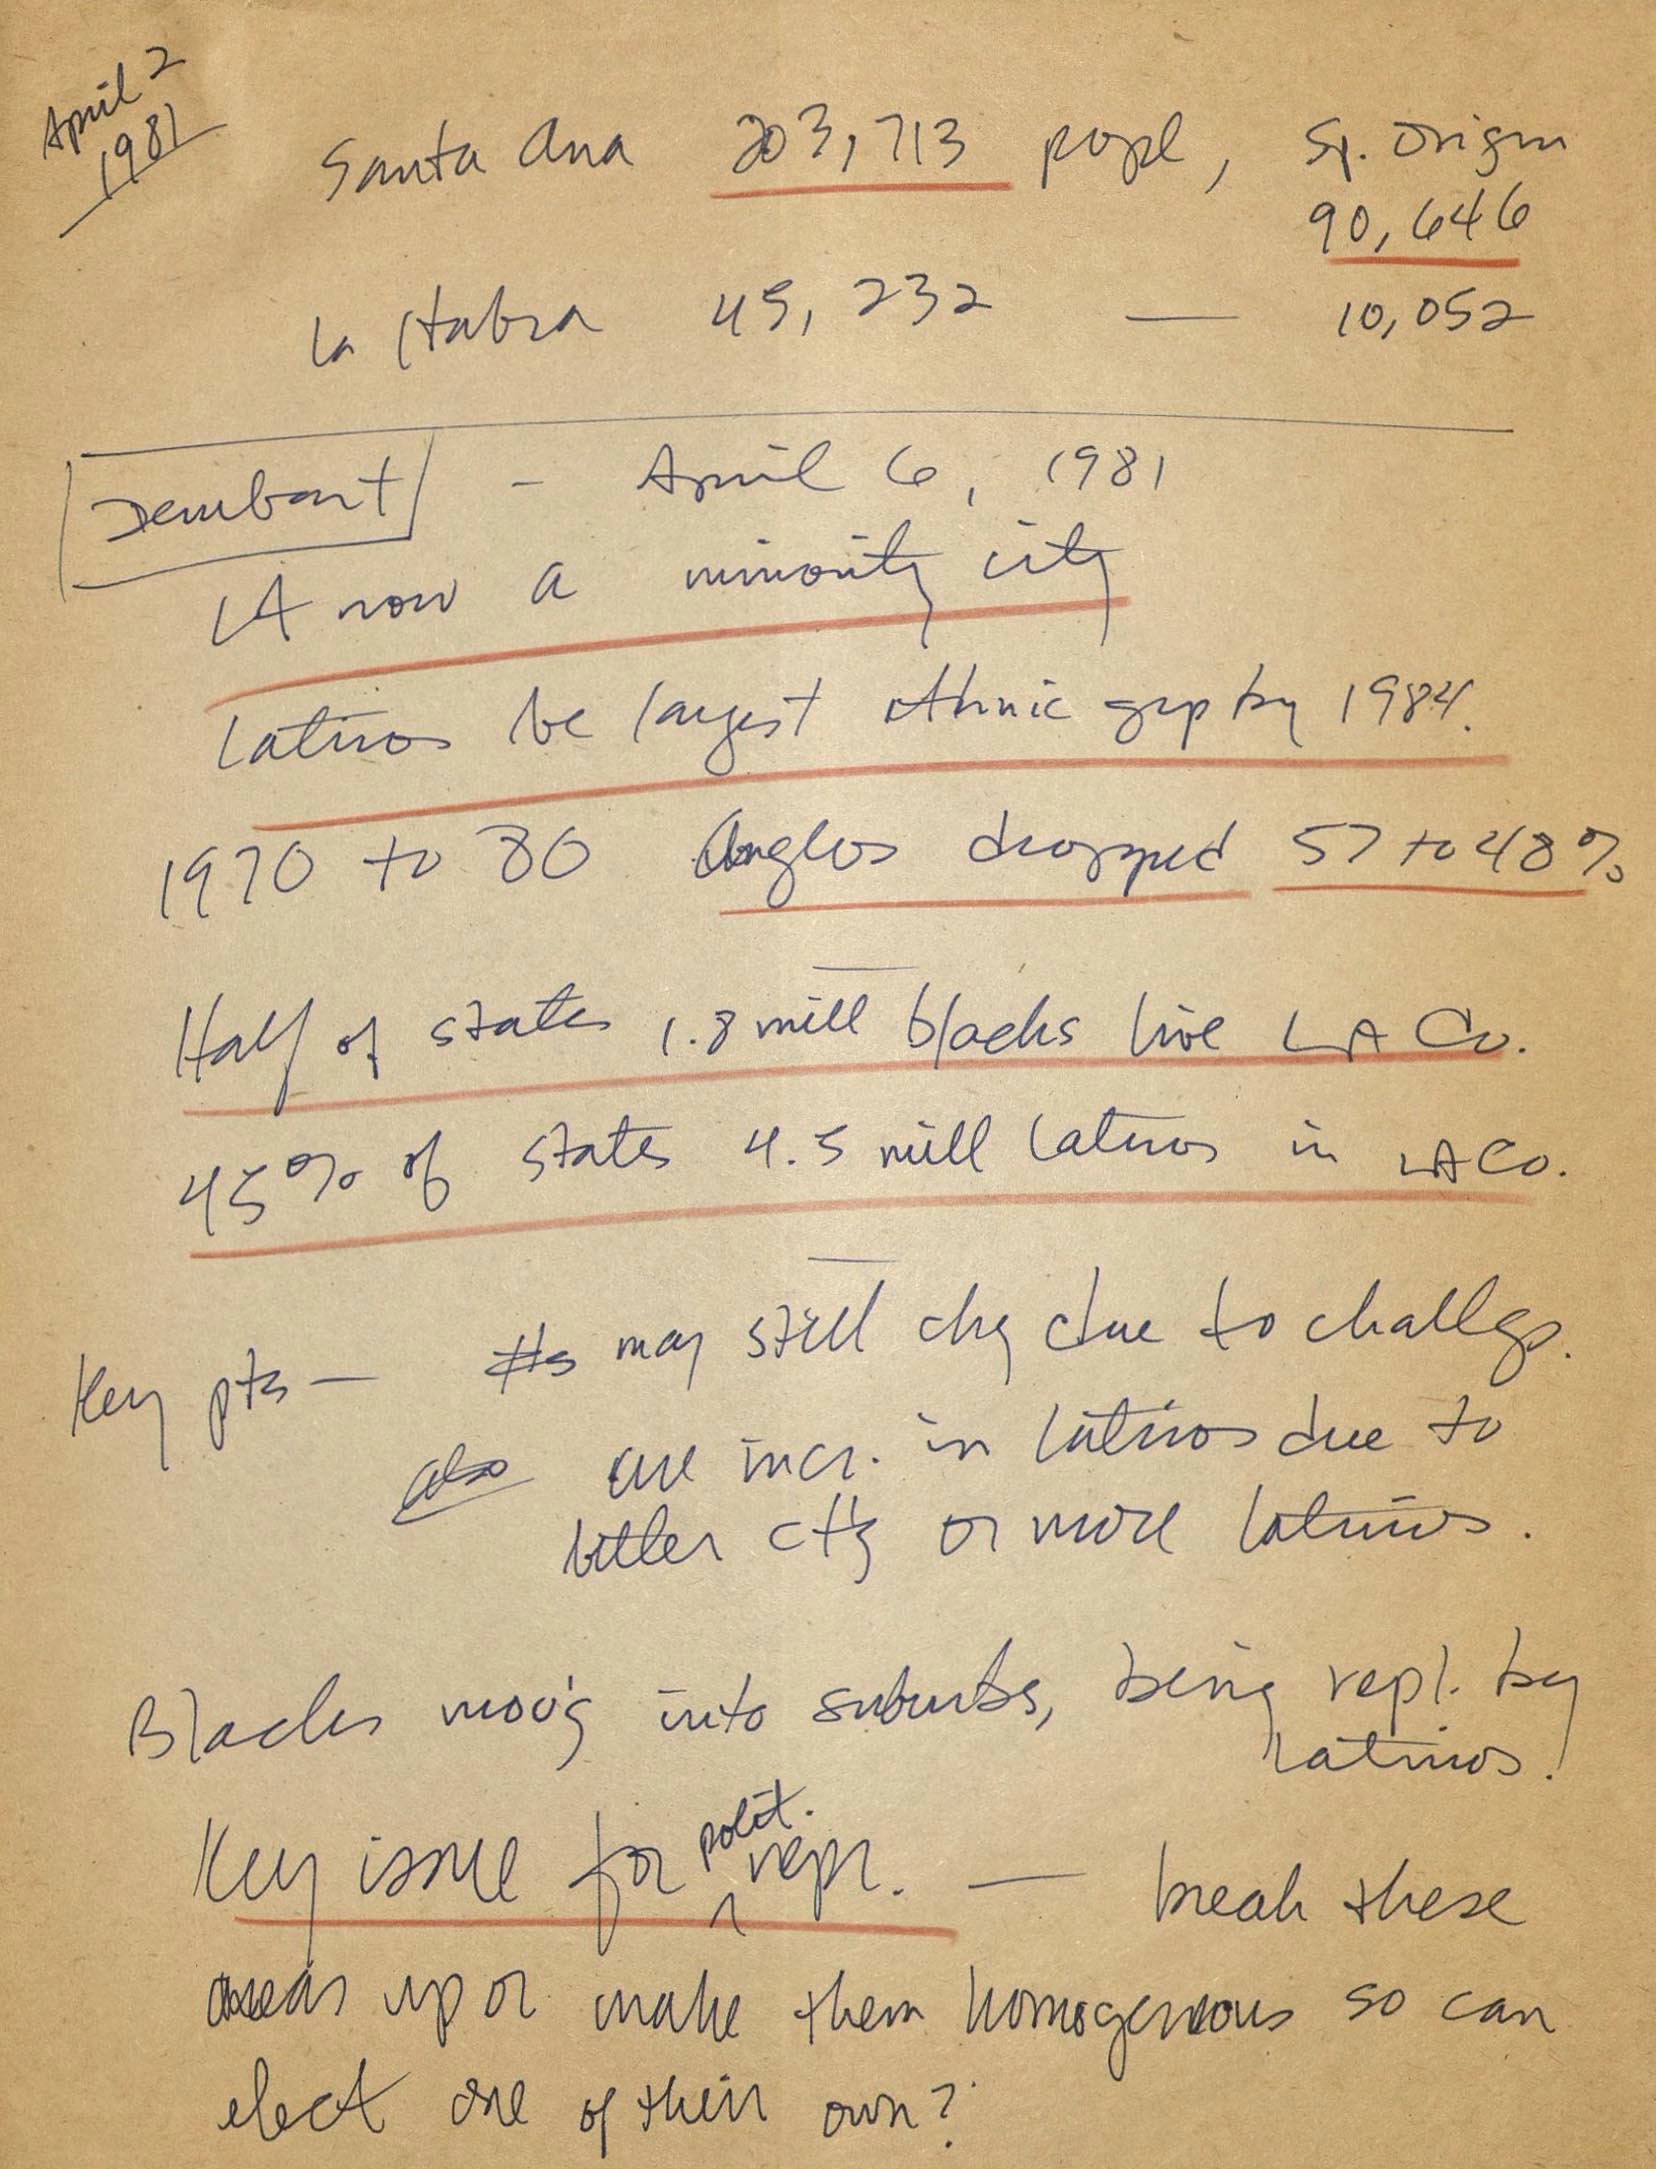 April 2
1981
Santa Ana 203,713 popl, Sp. Origin
90,646
La Habra 45,232 — 10,052
Dembart - April 6, 1981
LA now a minority city
Latinos be largest ethnic grp by 1984.
1970 to 80 Anglos dropped 57 to 48%
Half of states 1.8 mill blacks live LA Co.
45% of states 4.5 mill Latinos in LA Co.
Key pts — #s may still chg due to challgs.
also are incr. in Latinos due to
better ctg or more Latinos.
Blacks mov'g into suburbs, being repl. by
Latinos.
Key issue for polit. repr. — break these
areas up or make them homogeneous so can
elect one of their own?